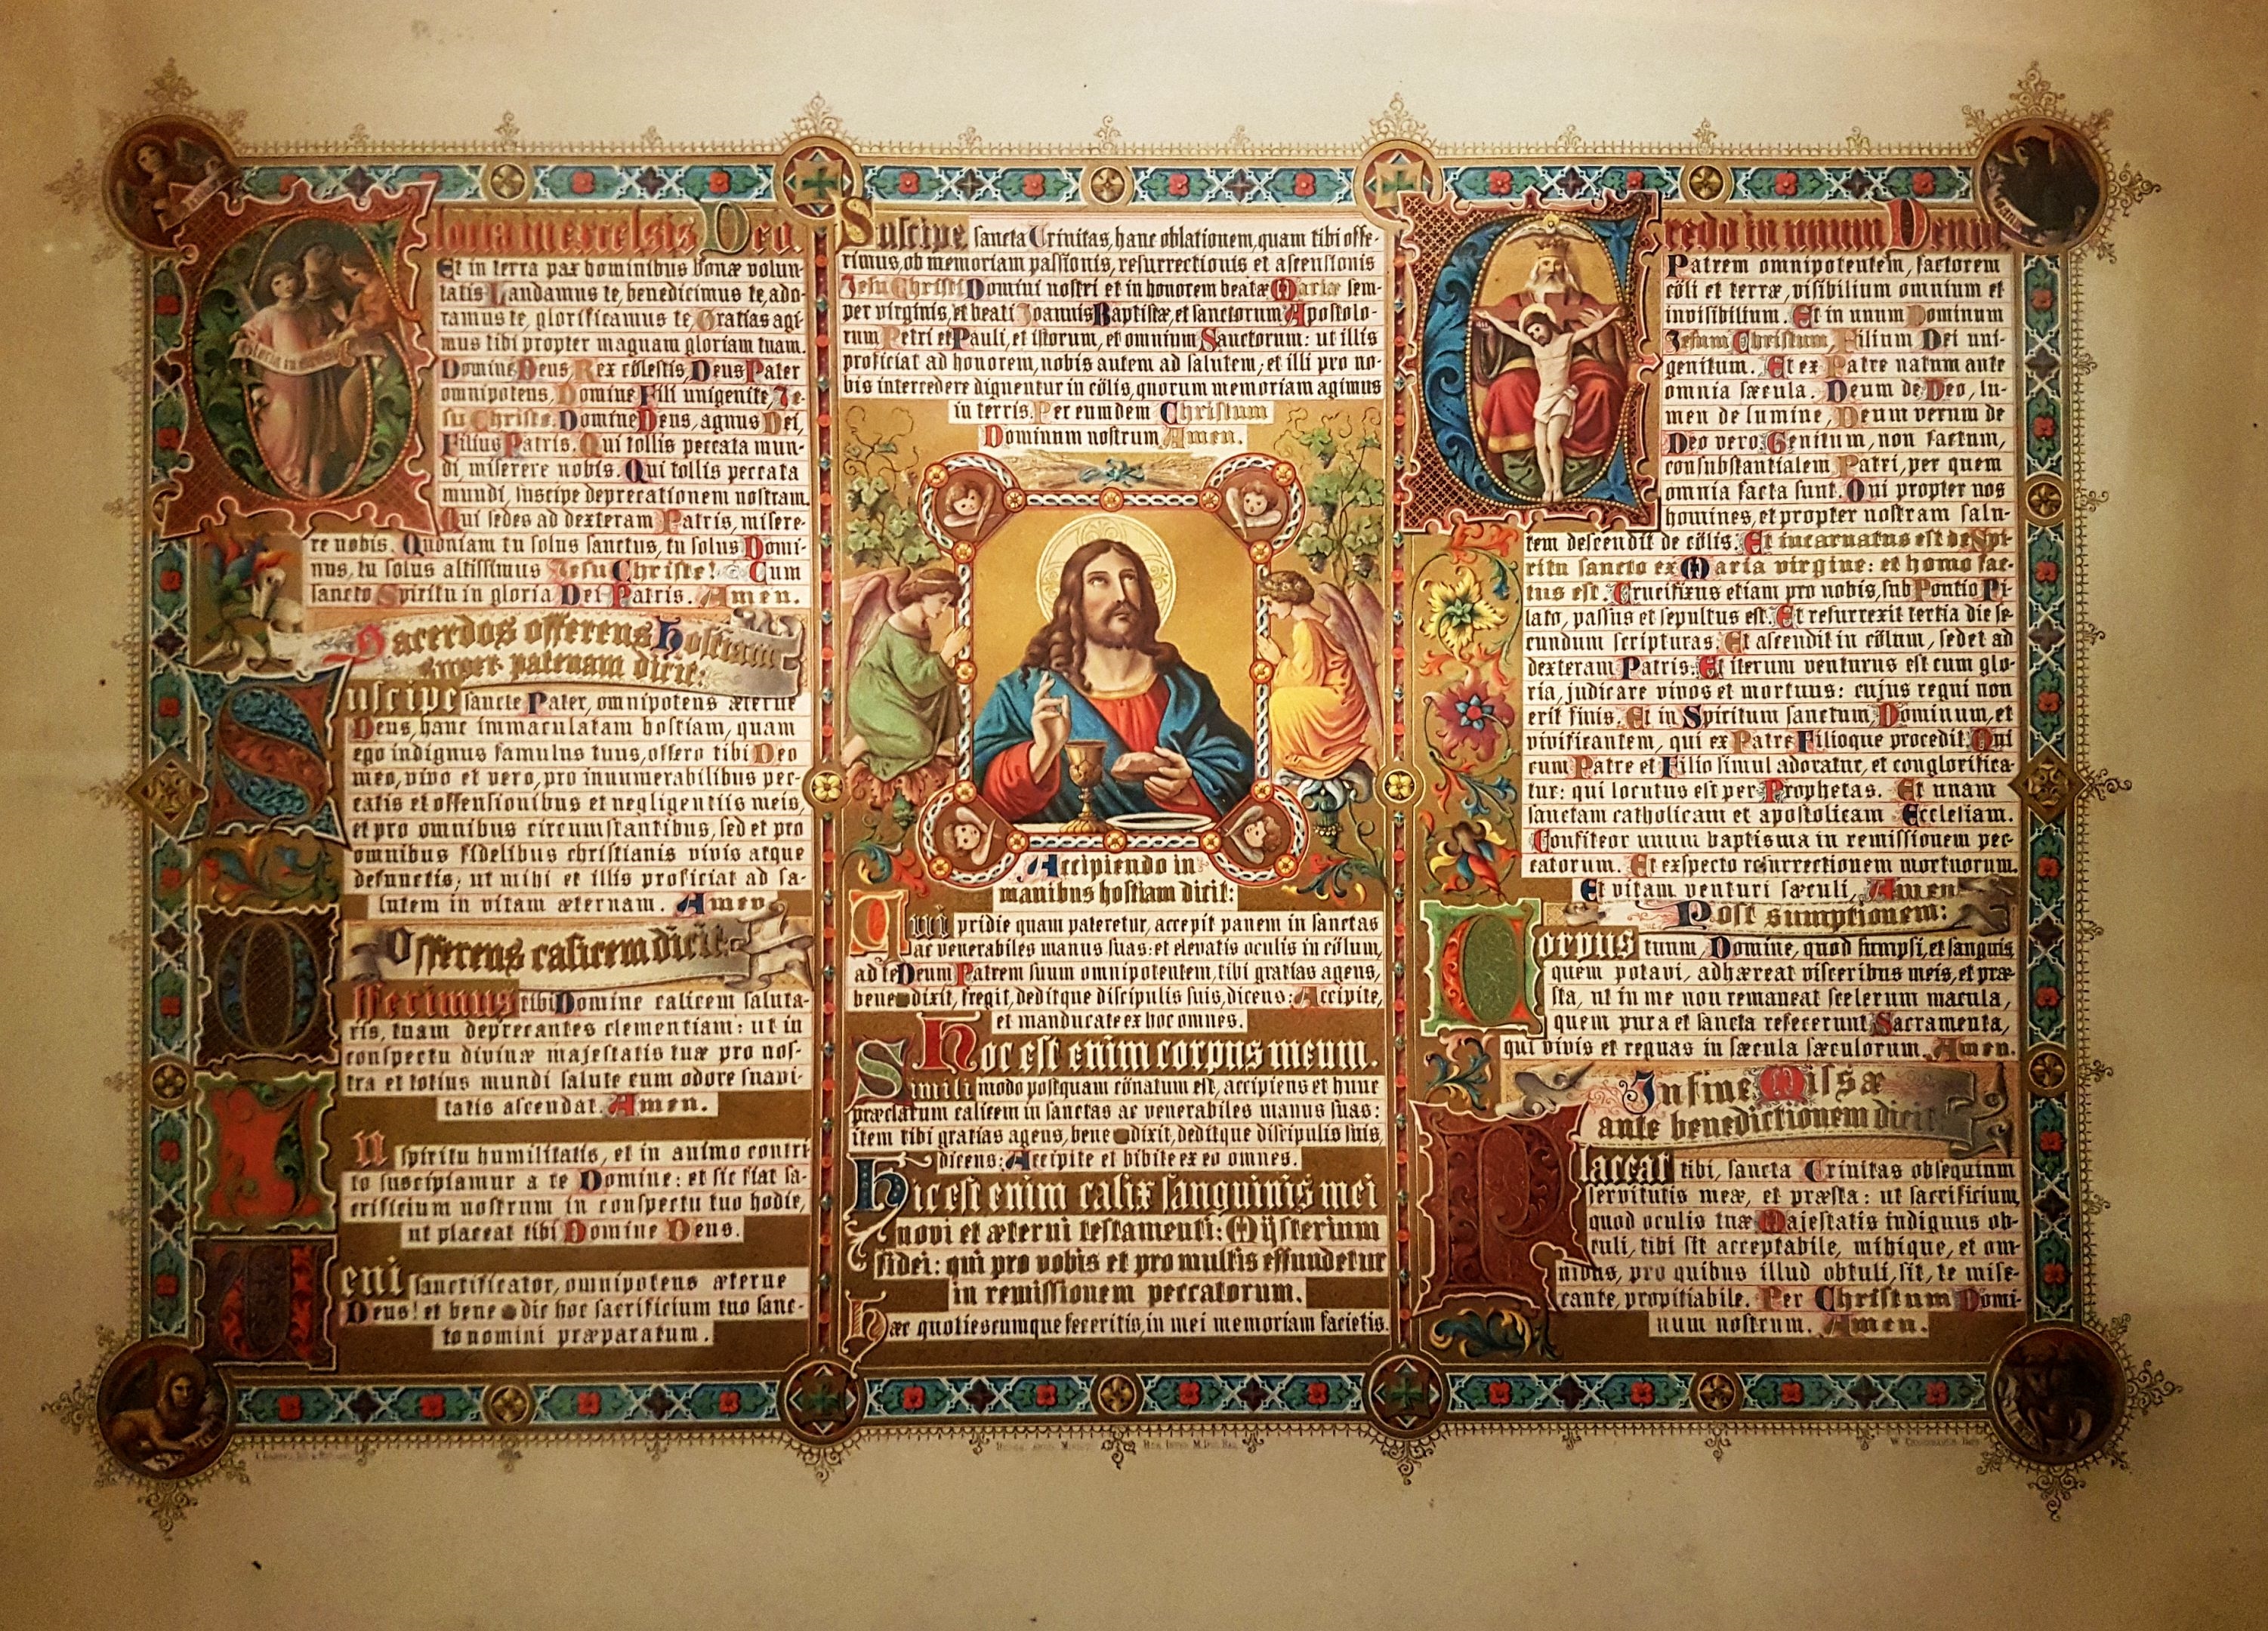 Gloria in excelsis Deo.
Et in terra pax hominibus bonæ volun-
tatis Laudamus te, benedicimus te, ado-
ramus te, glorificamus te, Gratias agi-
mus tibi propter magnam gloriam tuam.
Domine Deus, Rex cölestis, Deus Pater
omnipotens, Domine Fili unigenite, Je-
su Christe Domine Deus, agnus Dei,
Filius Patris. Qui tollis peccata mun-
di, miserere nobis. Qui tollis peccata
mundi, suscipe deprecationem nostram.
Qui sedes ad dexteram Patris, misere-
re nobis. Quoniam tu solus sanctus, tu solus Domi-
nus, tu solus altissimus Jesu Christe! Cum
sancto Spiritu in gloria Dei Patris. Amen.
Sacerdos offerens hostiam
super patenam dicit:
Suscipe sancte Pater, omnipotens æterne
Deus, hanc immaculatam hostiam, quam
ego indignus famulus tuus, offero tibi Deo
meo, vivo et vero, pro innumerabilibus pec-
catis et offensionibus et negligentiis meis,
et pro omnibus circumstantibus, sed et pro
omnibus fidelibus christianis vivis atque
defunctis; ut mihi et illis proficiat ad sa-
lutem in vitam æternam. Amen.
Offerens calicem dicit:
Offerimus tibi Domine calicem saluta-
ris, tuam deprecantes clementiam: ut in
conspectu divinæ majestatis tuæ pro nos-
tra et totius mundi salute cum odore suavi-
tatis ascendat. Amen.
In spiritu humilitatis, et in animo contri
to suscipiamur a te Domine: et sic fiat sa-
crificium nostrum in conspectu tuo hodie,
ut placeat tibi Domine Deus.
Veni sanctificator, omnipotens æterne
Deus! et bene dic hoc sacrificium tuo sanc-
to nomini præparatum.
Suscipe, sancta Trinitas, hanc oblationem, quam tibi offe-
rimus, ob memoriam passionis, resurrectionis et ascensionis
Jesu Christi Domini nostri et in honorem beatæ Mariæ sem-
per virginis, et beati Joannis Baptistæ, et sanctorum Apostolo-
rum Petri et Pauli, et istorum, et omnium Sanctorum: ut illis
proficiat ad honorem, nobis autem ad salutem; et illi pro no-
bis intercedere dignentur in cölis, quorum memoriam agimus
in terris. Per eumdem Christum
Dominum nostrum Amen.
Accipiendo in
manibus hostiam dicit:
Qui pridie quam pateretur, accepit panem in sanctas
ac venerabiles manus suas: et elevatis oculis in cölum,
ad te Deum Patrem suum omnipotentem, tibi gratias agens,
bene dixit, fregit, deditque discipulis suis, dicens: Accipite,
et manducate ex hoc omnes.
Hoc est enim corpus meum.
Simili modo postquam cönatum est, accipiens et hunc
præclarum calicem in sanctas ac venerabiles manus suas:
item tibi gratias agens, bene dixit, deditque discipulis suis,
dicens: Accipite et bibite ex eo omnes.
Hic est enim calix sanguinis mei
novi et æterni testamenti: Mysterium
fidei: qui pro vobis et pro multis effundetur
in remissionem peccatorum.
Hæc quotiescumque feceritis, in mei memoriam facietis.
Credo in unum Deum
Patrem omnipotentem, factorem
cöli et terræ, visibilium omnium et
invisibilium. Et in unum Dominum
Jesum Christum, Filium Dei uni-
genitum. Et ex Patre natum ante
omnia sæcula. Deum de Deo, lu-
men de lumine, Deum verum de
Deo vero. Genitum, non factum,
consubstantialem Patri, per quem
omnia facta sunt. Qui propter nos
homines, et propter nostram salu-
tem descendit de cölis. Et incarnatus est de Spi-
ritu sancto ex Maria virgine: et homo fac-
tus est. Crucifixus etiam pro nobis, sub Pontio Pi-
lato, passus et sepultus est. Et resurrexit tertia die se-
cundum scripturas. Et ascendit in cölum, sedet ad
dexteram Patris. Et iterum venturus est cum glo-
ria, judicare vivos et mortuus: cujus regni non
erit finis. Et in Spiritum sanctum, Dominum, et
vivificantem, qui ex Patre Filioque procedit Qui
cum Patre et Filio simul adoratur, et conglorifica-
tur: qui locutus est per Prophetas. Et unam
sanctam catholicam et apostolicam Ecclesiam.
Confiteor unum baptisma in remissionem pec-
catorum. Et exspecto resurrectionem mortuorum.
Et vitam venturi sæculi, Amen
Post sumptionem:
Corpus tuum, Domine, quod sumpsi, et sanguis,
quem potavi, adhæreat visceribus meis, et præ-
sta, ut in me non remaneat scelerum macula,
quem pura et sancta refecerunt Sacramenta,
qui vivis et regnas in sæcula sæculorum. Amen.
In fine Missæ
ante benedictionem dicit:
Placeat tibi, sancta Trinitas obsequium
servitutis meæ, et præsta: ut sacrificium,
quod oculis tuæ Majestatis indignus ob-
tuli, tibi sit acceptabile, mihique, et om-
nibus, pro quibus illud obtuli, sit, te mise-
rante, propitiabile. Per Christum Domi-
num nostrum. Amen.